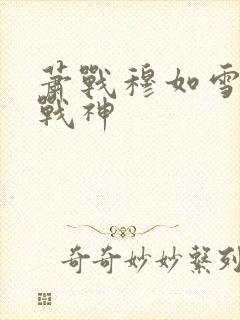 蕭戰穆如雪
戰神
奇奇妙妙繫列